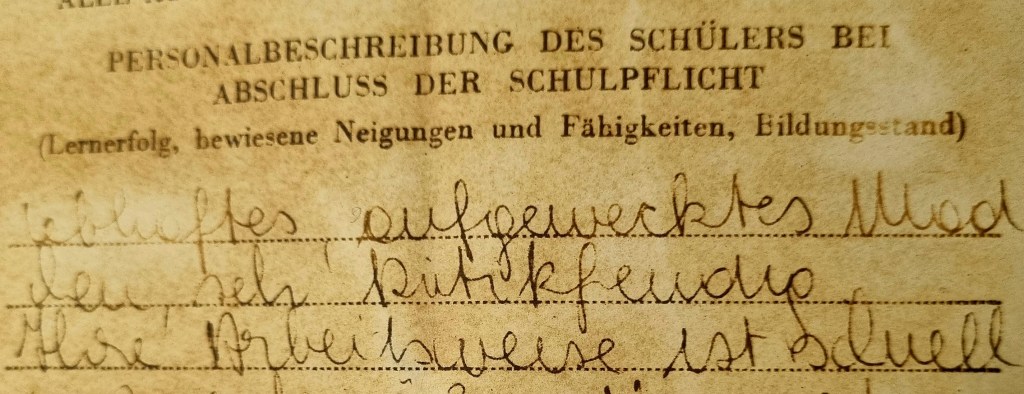 PERSONALBESCHREIBUNG DES SCHÜLERS BEI
ABSCHLUSS DER SCHULPFLICHT
(Lernerfolg, bewiesene Neigungen und Fähigkeiten, Bildungsstand)
lebhaftes, aufgewecktes Mäd
chen, sehr kritikfreudig.
Ihre Arbeitsweise ist schnell